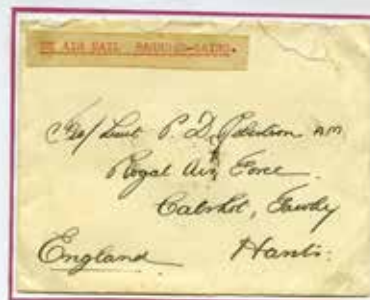 BY AIR MAIL BAGHDAD-CAIRO.
Lieut P. D. Robertson AM
Royal Air Force
Calshot, Fawley
England Hants.